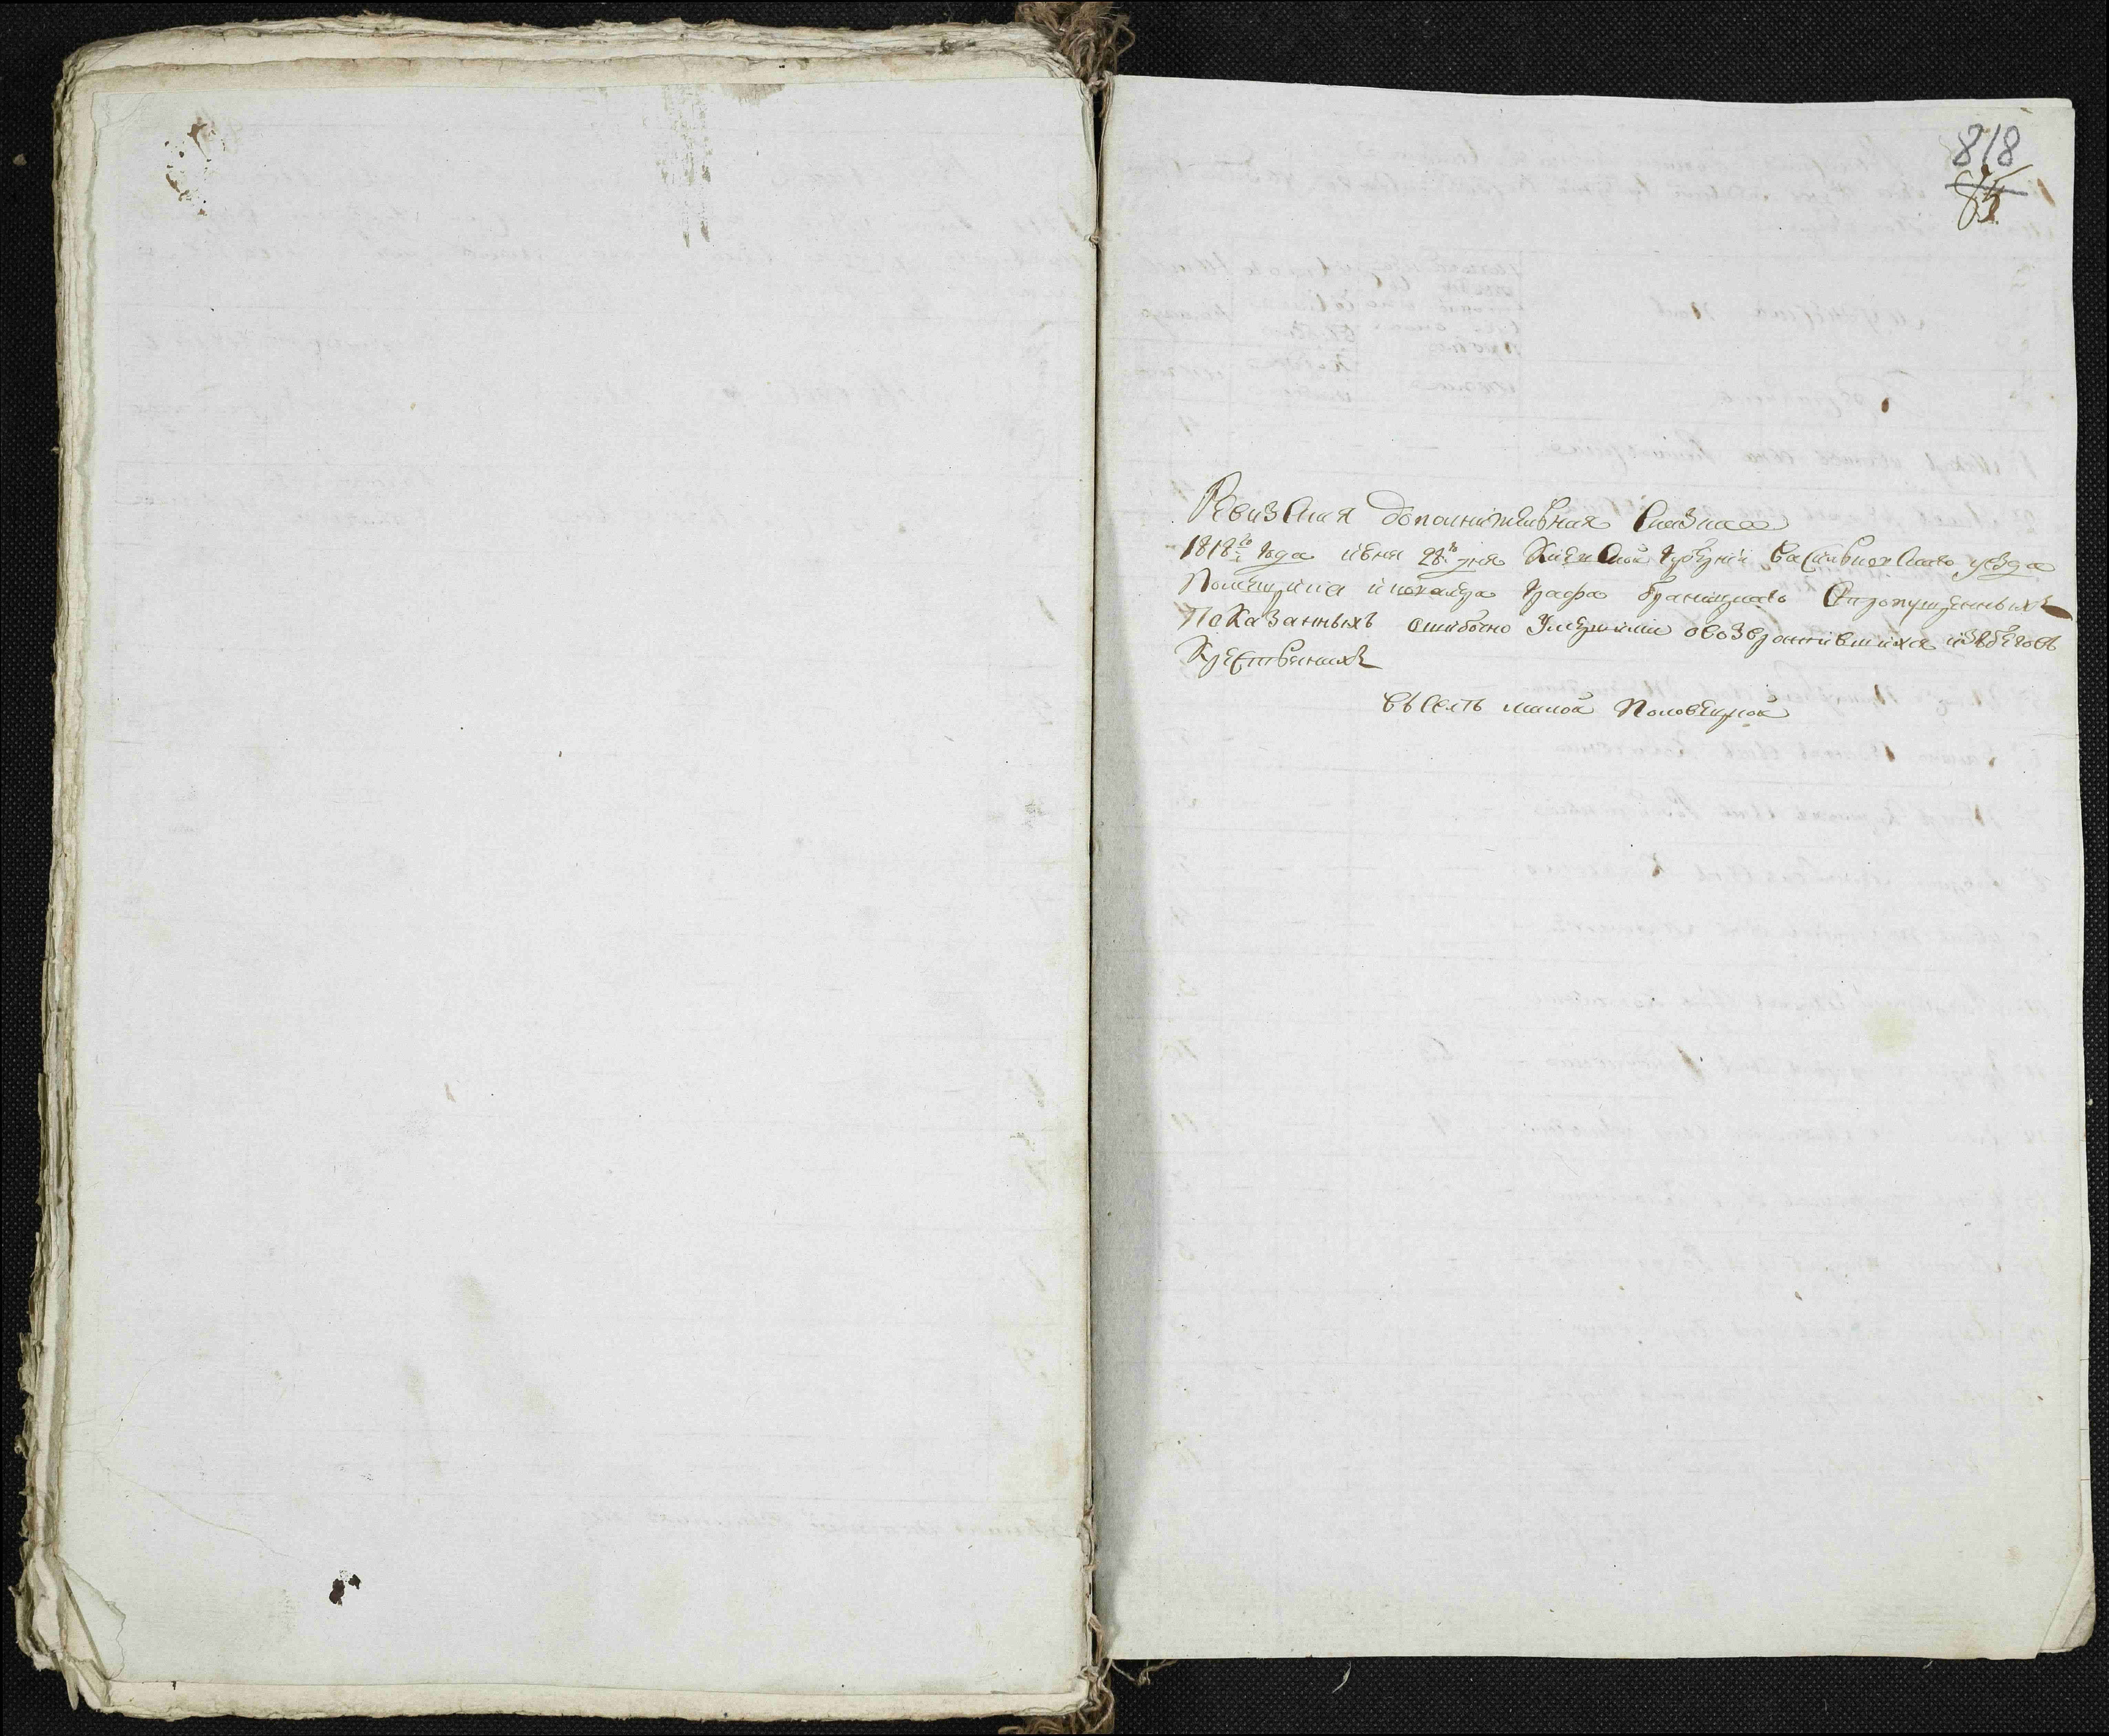 818
85
Ревизская дополнительная Сказка
1818го года июня 28го дня Киевской губернии васильковскаго уезда
Помещика и кавалера графа браницкаго О пропущенныхъ
Показанныхъ ошибочно умершими и возвратившихся изъ беговъ
Крестьянахъ
въ селе малой Половецкой